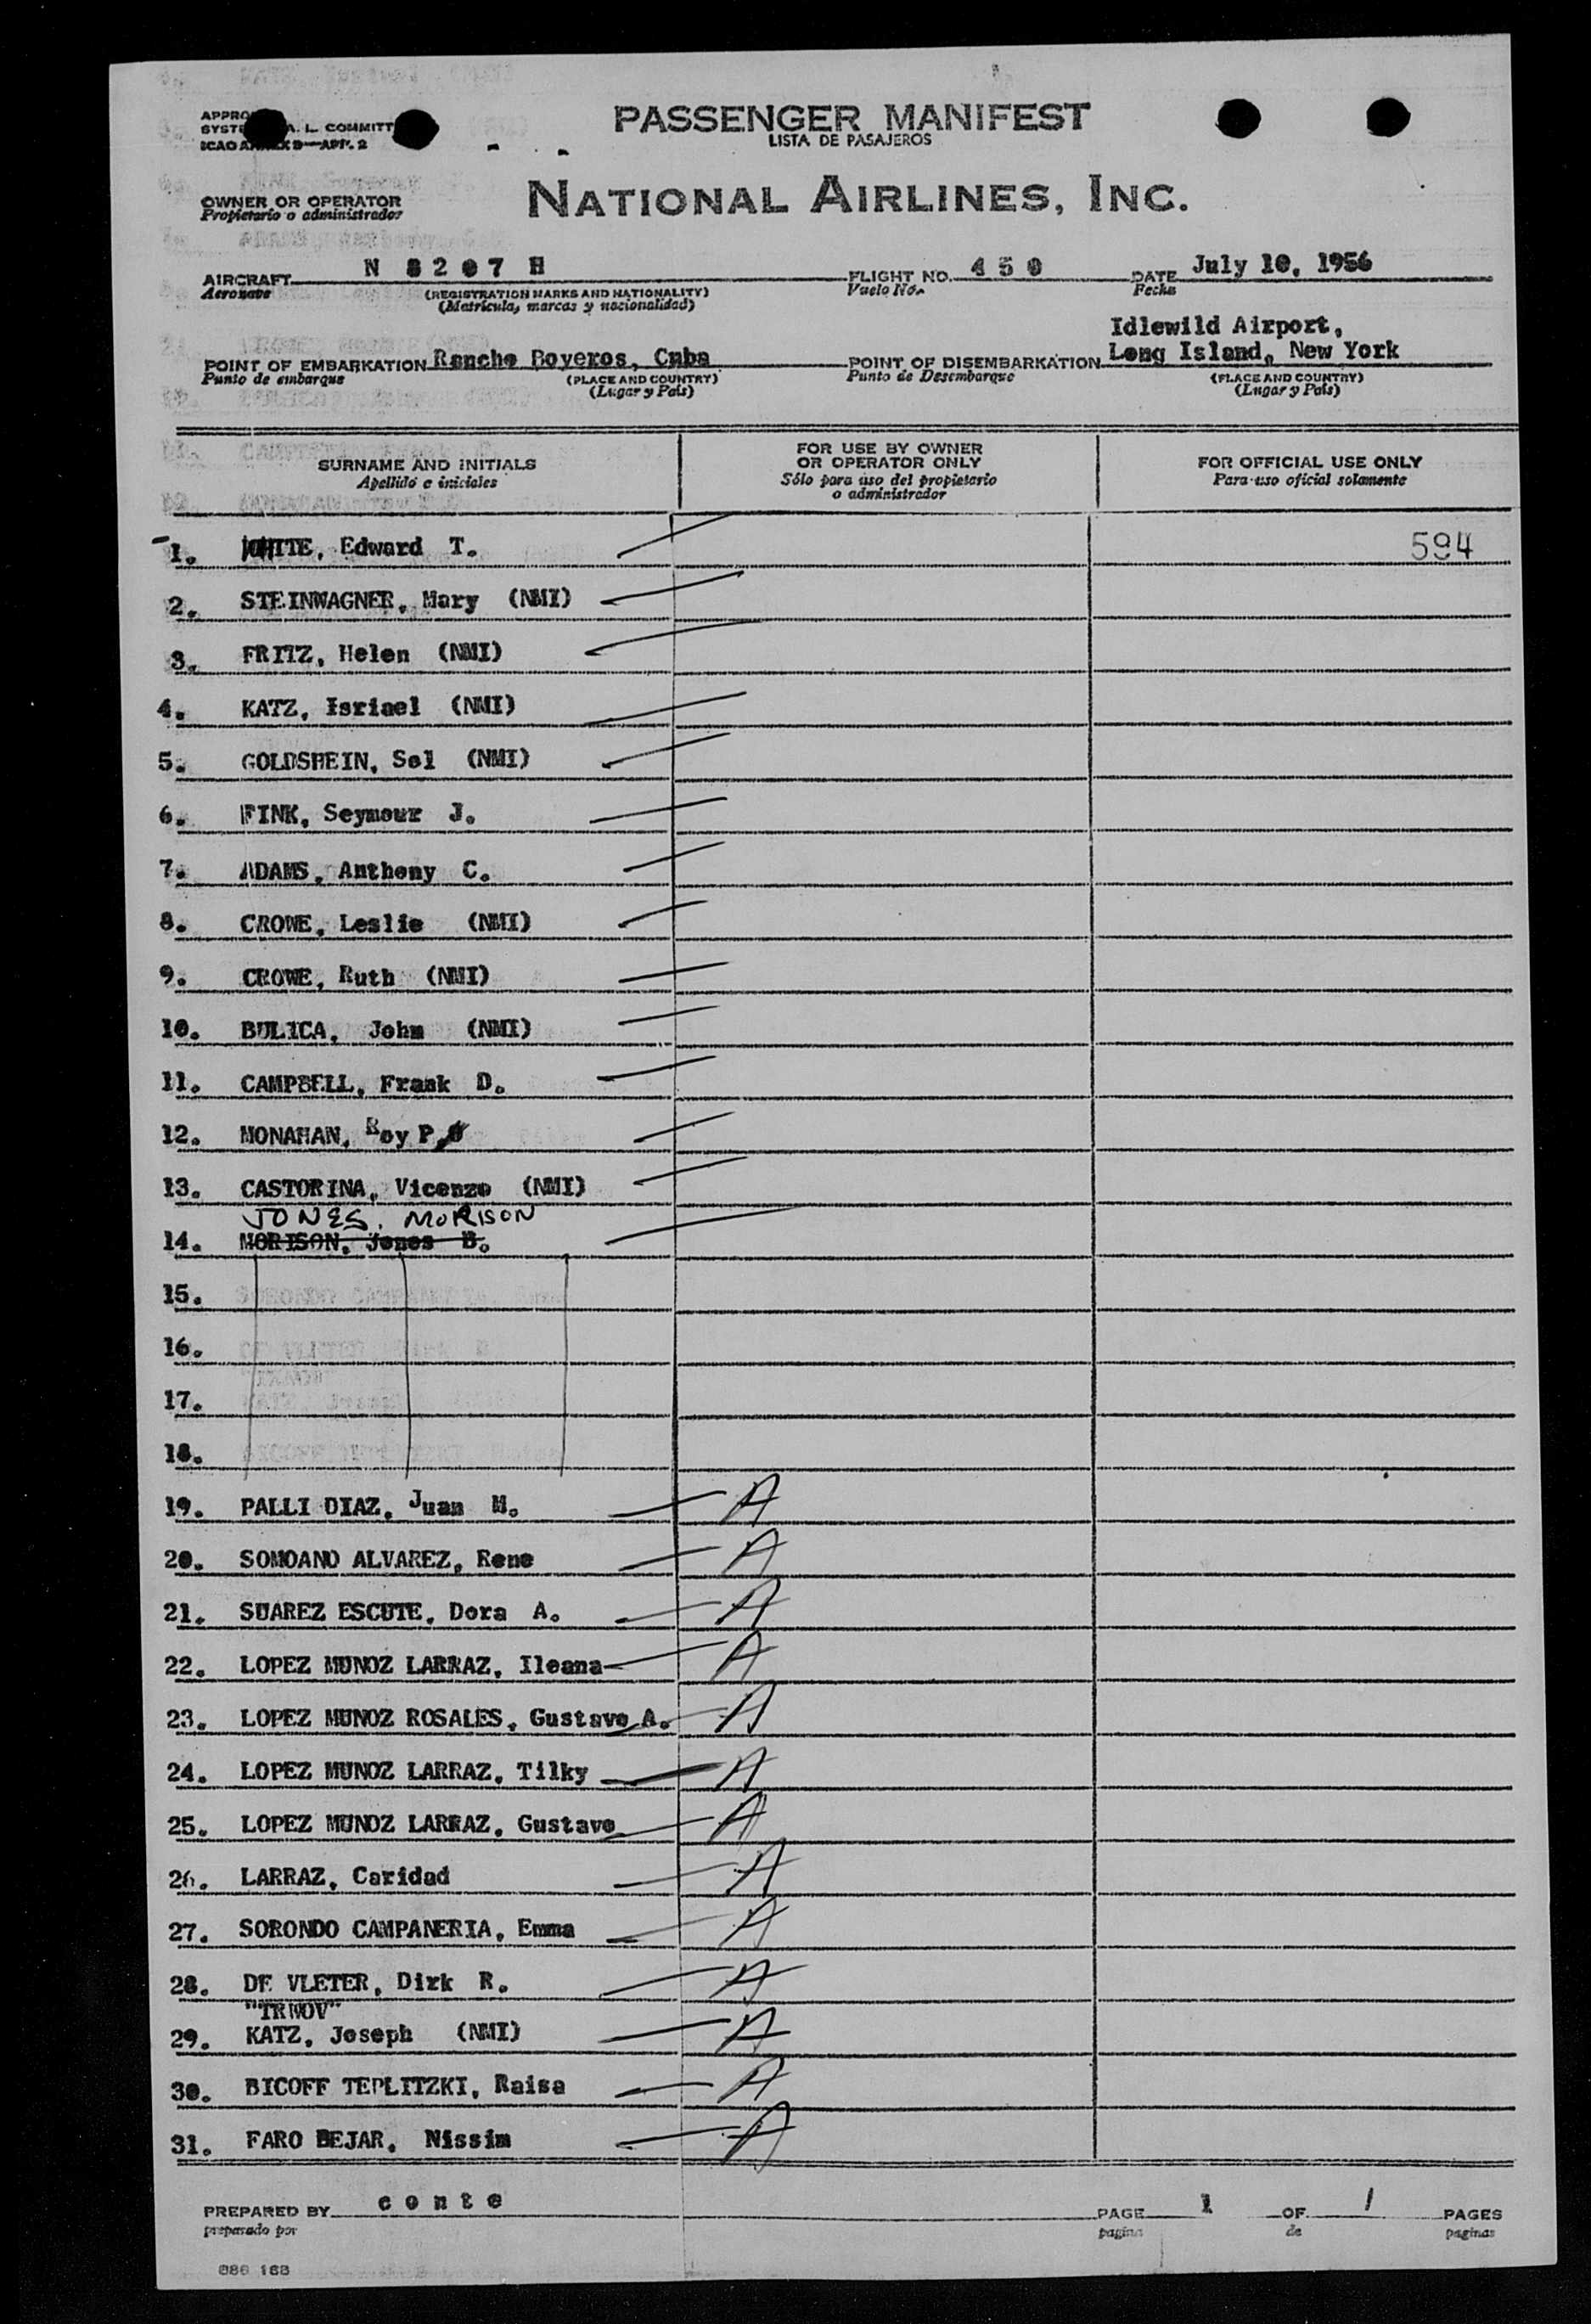 PASSENGER MANIFEST
LISTA DE PASAJEROS
NATIONAL AIRLINES, INC.
OWNER OR OPERATOR
Propietario o administrador
AIRCRAFT N 8207H FLIGHT NO. 450 DATE July 10, 1956
Aeronave (REGISTRATION MARKS AND NATIONALITY) Vuelo No. Fecha
(Matrícula, marcas y nacionalidad)
Idlewild Airport,
POINT OF EMBARKATION Rancho Boyeros, Cuba POINT OF DISEMBARKATION Long Island, New York
Punto de embarque (PLACE AND COUNTRY) Punto de Desembarque (PLACE AND COUNTRY)
(Lugar y País) (Lugar y País)
SURNAME AND INITIALS
Apellido e iniciales
FOR USE BY OWNER
OR OPERATOR ONLY
Sólo para uso del propietario
o administrador
FOR OFFICIAL USE ONLY
Para uso oficial solamente
1. WHITE, Edward T. 594
2. STEINWAGNER, Mary (NMI)
3. FRITZ, Helen (NMI)
4. KATZ, Isriael (NMI)
5. GOLDSHEIN, Sol (NMI)
6. FINK, Seymour J.
7. ADAMS, Anthony C.
8. CROWE, Leslie (NMI)
9. CROWE, Ruth (NMI)
10. BULICA, John (NMI)
11. CAMPBELL, Frank D.
12. MONAHAN, Roy P.
13. CASTORINA, Vicenzo (NMI)
JONES, MORISON
14. MORISON, Jones B.
15.
16.
17.
18.
19. PALLI DIAZ, Juan M. A
20. SOMOANO ALVAREZ, Rene A
21. SUAREZ ESCUTE, Dora A. A
22. LOPEZ MUNOZ LARRAZ, Ileana A
23. LOPEZ MUNOZ ROSALES, Gustavo A. A
24. LOPEZ MUNOZ LARRAZ, Tilky A
25. LOPEZ MUNOZ LARRAZ, Gustavo A
26. LARRAZ, Caridad A
27. SORONDO CAMPANERIA, Emma A
28. DE VLETER, Dirk R. A
"TRWOV"
29. KATZ, Joseph (NMI) A
30. BICOFF TEPLITZKI, Raisa A
31. FARO BEJAR, Nissim A
PREPARED BY conte PAGE 1 OF 1 PAGES
preparado por pagina de paginas